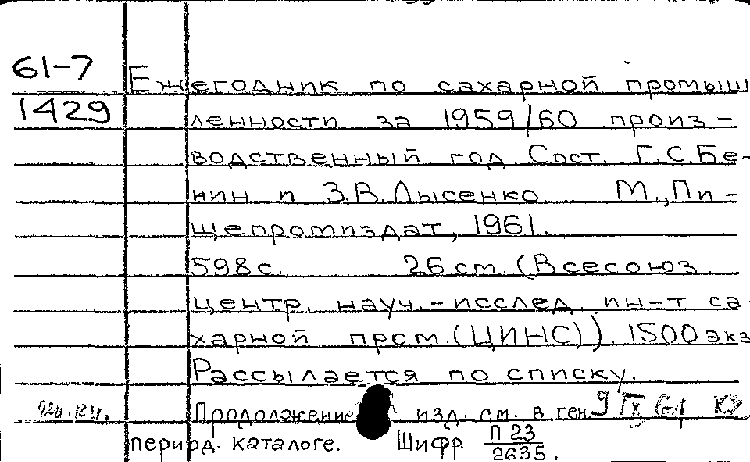 61-7 Ежегодник по сахарной промыш
1429 ленности за 1959/60 произ-
водственный год Сост. Г.С.Бе-
нин и З.В.Лысенко М.,Пи-
щепромиздат, 1961.
598с. 26см. (Всесоюз.
центр. науч.-исслед. ин-т са-
харной пром.(ЦИНС)). 1500 экз
Рассылается по списку.
Продолжение изд. см. в ген.
период. каталоге. Шифр П 23
2635.